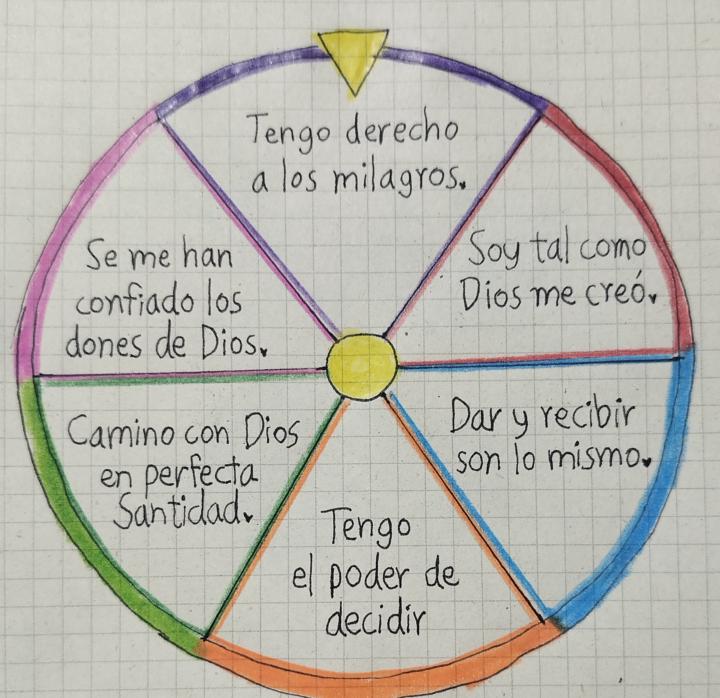 Tengo derecho
a los milagros.
Soy tal como
Dios me creó.
Dar y recibir
son lo mismo.
Tengo
el poder de
decidir
Camino con Dios
en perfecta
Santidad.
Se me han
confiado los
dones de Dios.